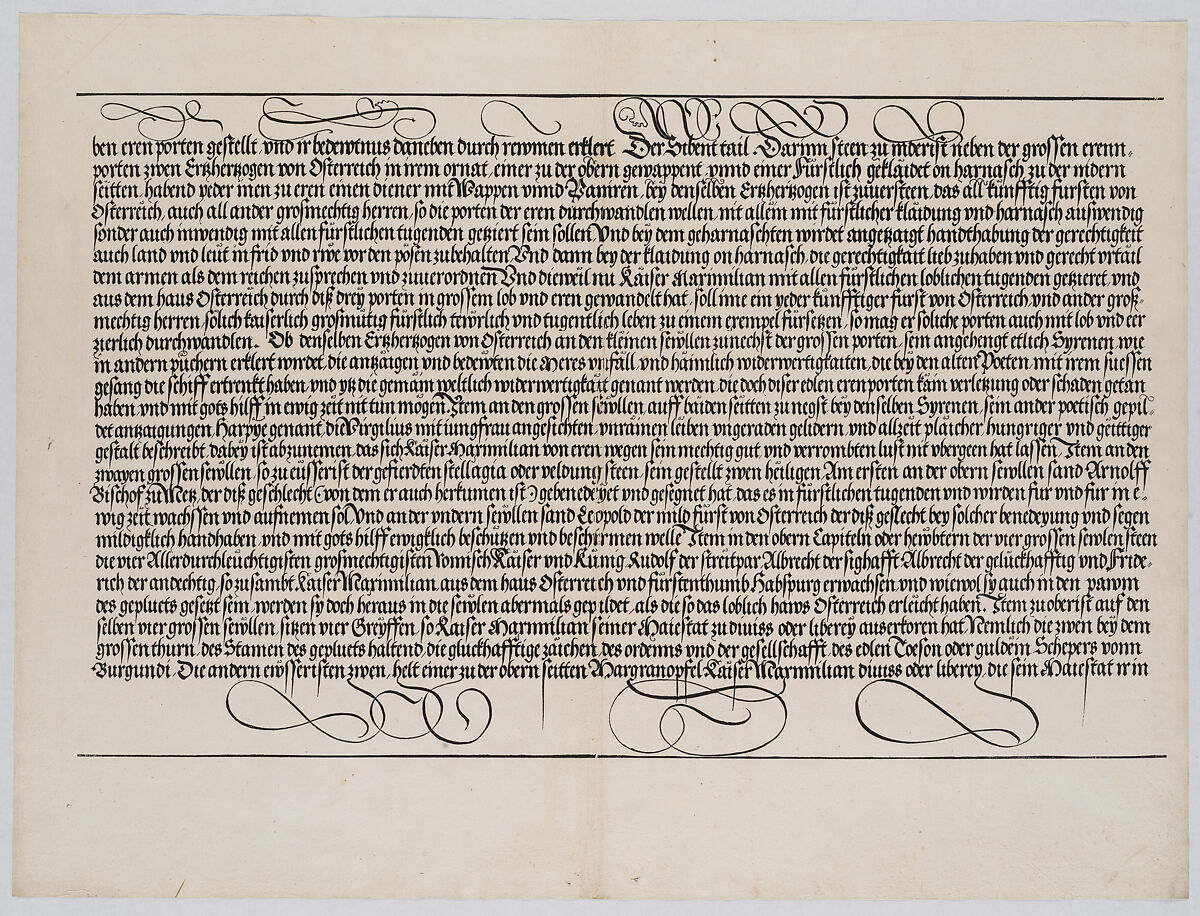 ben eren porten gestellt vnd ir bedewtnus daneben durch reymen erklert Der Sibent tail Darinn steen zu inderist neben der grossen erenn-
porten zwen Ertzhertzogen von Osterreich in irem ornat, einer zu der obern gewappent vnnd einer Fürstlich geklaidet on harnasch zu der nidern
seitten, habend yeder inen zu eren einen diener mit Wappen vnnd Paniren, bey denselben Ertzhertzogen ist zuuersteen, das all künfftig fursten von
Osterreich, auch all ander grosmechtig herren, so die porten der eren durchwandlen wellen, nit allein mit fürstlicher klaidung vnd harnasch auswendig
sonder auch inwendig mit allen fürstlichen tugenden getziert sein sollen Vnd bey dem geharnaschten wirdet angetzaigt handthabung der gerechtigkeit
auch land vnd leut in frid vnd rwe vor den pösen zubehalten Vnd dann bey der klaidung on harnasch, die gerechtigkeit lieb zuhaben vnd gerecht vrtail
dem armen als dem reichen zusprechen vnd zuuerordnen Vnd dieweil nu Kaiser Maximilian mit allen fürstlichen loblichen tugenden getzieret, vnd
aus dem haus Osterreich durch diß drey porten in grossem lob vnd eren gewandelt hat, soll ime ein yeder künfftiger furst von Osterreich vnd ander groß-
mechtig herren, solich kaiserlich grosmütig fürstlich tewrlich vnd tugentlich leben zu einem exempel fürsetzen, so mag er soliche porten auch mit lob vnd eer
zierlich durchwandlen. Ob denselben Ertzhertzogen von Osterreich an den kleinen sewllen zunechst der grossen porten, sein angehengt etlich Syrenen, wie
in andern püchern erklert wirdet, die antzaigen vnd bedewten die Meres vnfäll, vnd haimlich widerwertigkaiten, die bey den alten Poeten, mit irem suessen
gesang die schiff ertrenkt haben, vnd ytz die gemain weltlich widerwertigkait genant werden, die doch diser edlen eren porten kain verletzung oder schaden getan
haben, vnd mit gots hilff in ewig zeit nit tun mögen. Item an den grossen sewllen auff baiden seitten zu negst bey denselben Syrenen, sein ander poetisch gepil-
det antzaigungen, Harpye genant, die Virgilius mit iungfraw angesichten, vnrainen leiben vngeraden gelidern, vnd allzeit plaicher hungriger vnd geittiger
gestalt beschreibt, dabey ist abzunemen, das sich Kaiser Maximilian von eren wegen sein mechtig gut vnd verrombten lust nit vbergeen hat lassen. Item an den
zwayen grossen sewllen, so zu eusserist der gefierdten stellagia oder veldung steen, sein gestellt zwen heiligen, Am ersten an der obern sewllen sand Arnolff
Bischof zu Metz, der diß geschlecht (von dem er auch herkumen ist) gebenedeyet vnd gesegnet hat, das es in fürstlichen tugenden vnd wirden fur vnd für in e-
wig zeit wachssen vnd aufnemen sol, Vnd an der vndern sewllen sand Leopold der mild fürst von Osterreich der diß geslecht bey solcher benedeyung vnd segen
mildigklich handhaben, vnd mit gots hilff ewigklich beschützen vnd beschirmen welle Item in den obern Capiteln oder hewbtern der vier grossen sewlen steen
die vier Allerdurchleuchtigisten grosmechtigisten Romisch Kaiser vnd Künig, Rudolf der streitpar, Albrecht der sighafft, Albrecht der gelückhafftig vnd Fride-
rich der andechtig, so zusambt Kaiser Maximilian aus dem haus Osterreich vnd fürstenthumb Habspurg erwachsen, vnd wiewol sy auch in den pawm
des gepluets gesetzt sein, werden sy doch heraus in die sewlen abermals gepildet, als die so das loblich haws Osterreich erleücht haben. Item zu oberist auf den
selben vier grossen sewllen, sitzen vier Greyffen, so Kaiser Maximilian seiner Maiestat zu diuiss oder liberey auserkoren hat Nemlich die zwen bey dem
grossen thurn, des Stamen des gepluets haltend, die glückhafftige zaichen, des ordenns vnd der gesellschafft, des edlen Toeson oder guldein Schepers vonn
Burgundi, Die andern ewsseristen zwen, helt einer zu der obern seitten Margranopfel Kaiser Maximilian diuiss oder liberey, die sein Maiestat ir in